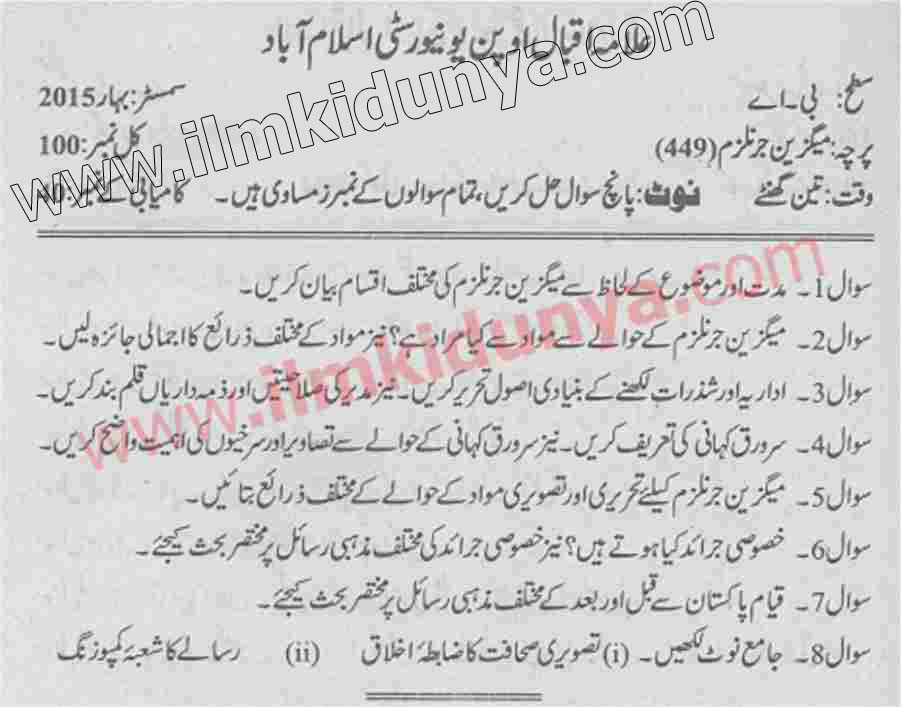 علامہ اقبال اوپن یونیورسٹی اسلام آباد
www.ilmkidunya.com
سطح: بی۔اے سمسٹر: بہار 2015
پرچہ: میگزین جرنلزم (449) کل نمبر: 100
وقت: تین گھنٹے نوٹ: پانچ سوال حل کریں، تمام سوالوں کے نمبرز مساوی ہیں۔ کامیابی کے نمبر: 40
www.ilmkidunya.com
سوال 1۔ مدت اور موضوع کے لحاظ سے میگزین جرنلزم کی مختلف اقسام بیان کریں۔
سوال 2۔ میگزین جرنلزم کے حوالے سے مواد سے کیا مراد ہے؟ نیز مواد کے مختلف ذرائع کا اجمالی جائزہ لیں۔
سوال 3۔ اداریہ اور شذرات لکھنے کے بنیادی اصول تحریر کریں۔ نیز مدیر کی صلاحیتیں اور ذمہ داریاں قلم بند کریں۔
سوال 4۔ سرورق کہانی کی تعریف کریں۔ نیز سرورق کہانی کے حوالے سے تصاویر اور سرخیوں کی اہمیت واضح کریں۔
سوال 5۔ میگزین جرنلزم کیلئے تحریری اور تصویری مواد کے حوالے کے مختلف ذرائع بتائیں۔
سوال 6۔ خصوصی جرائد کیا ہوتے ہیں؟ نیز خصوصی جرائد کی مختلف مذہبی رسائل پر مختصر بحث کیجئے۔
سوال 7۔ قیام پاکستان سے قبل اور بعد کے مختلف مذہبی رسائل پر مختصر بحث کیجئے۔
سوال 8۔ جامع نوٹ لکھیں۔ (i) تصویری صحافت کا ضابطۂ اخلاق (ii) رسالے کا شعبۂ کمپوزنگ